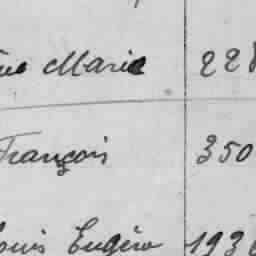 Marie 228
François 350
Eugène 193